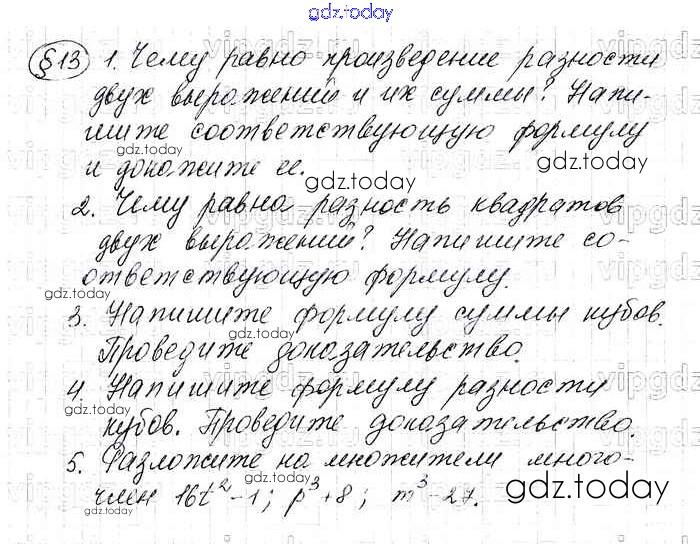 gdz.today
§13 1. Чему равно произведение разности
двух выражений и их суммы? Напи-
шите соответствующую формулу
gdz.today
gdz.today
и докажите ее.
gdz.today
2. Чему равна разность квадратов
gdz.today
двух выражений? Напишите со-
ответствующую формулу.
gdz.today
3. Напишите формулу суммы кубов.
gdz.today
Проведите доказательство.
4. Напишите формулу разности
gdz.today
кубов. Проведите доказательство.
5. Разложите на множители много-
gdz.today
член 16t²-1; p³+8; m³-27.
gdz.today